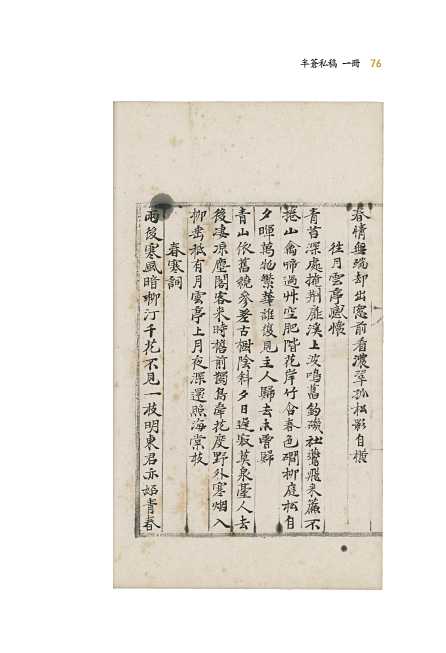 半蒼私稿 一冊 76
春情無端却出窓前看濃翠孤松影自橫
往月雲亭感懷
青苔深處掩荆扉溪上波鳴舊釣磯社鷰飛來簾不
捲山禽啼過艸空肥階花岸竹含春色磵柳庭松自
夕暉萬物繁華誰復見主人歸去未曾歸
青山依舊繞參差古樹陰斜夕日遲寂莫泉臺人去
後凄凉塵閣客來時檐前獨鳥韋花庭野外寒烟入
柳岸秪有月雲亭上月夜深還照海棠枝
春寒詞
雨後寒風暗柳汀千花不見一枝明東君亦妬青春